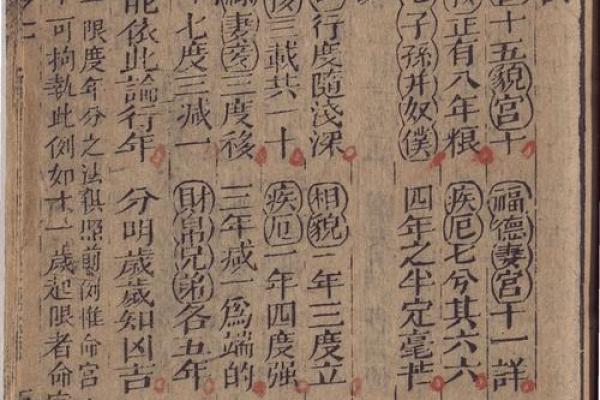 十五貌宮十 福德妻宮十一詳
正有八年粮 疾厄七兮其六六
子孫并奴僕 四年之半定毫芒
行度隨淺深 相貌一年三度立
三載共一十 疾厄一年四度强
妻妾三度移 三年减一為端的
七度三减一 財帛兄弟各五年
能依此論行年 分明歲歲知凶吉
限度年分之法俱照前例惟命宮
可拘執此例如十一歲起限者命宮